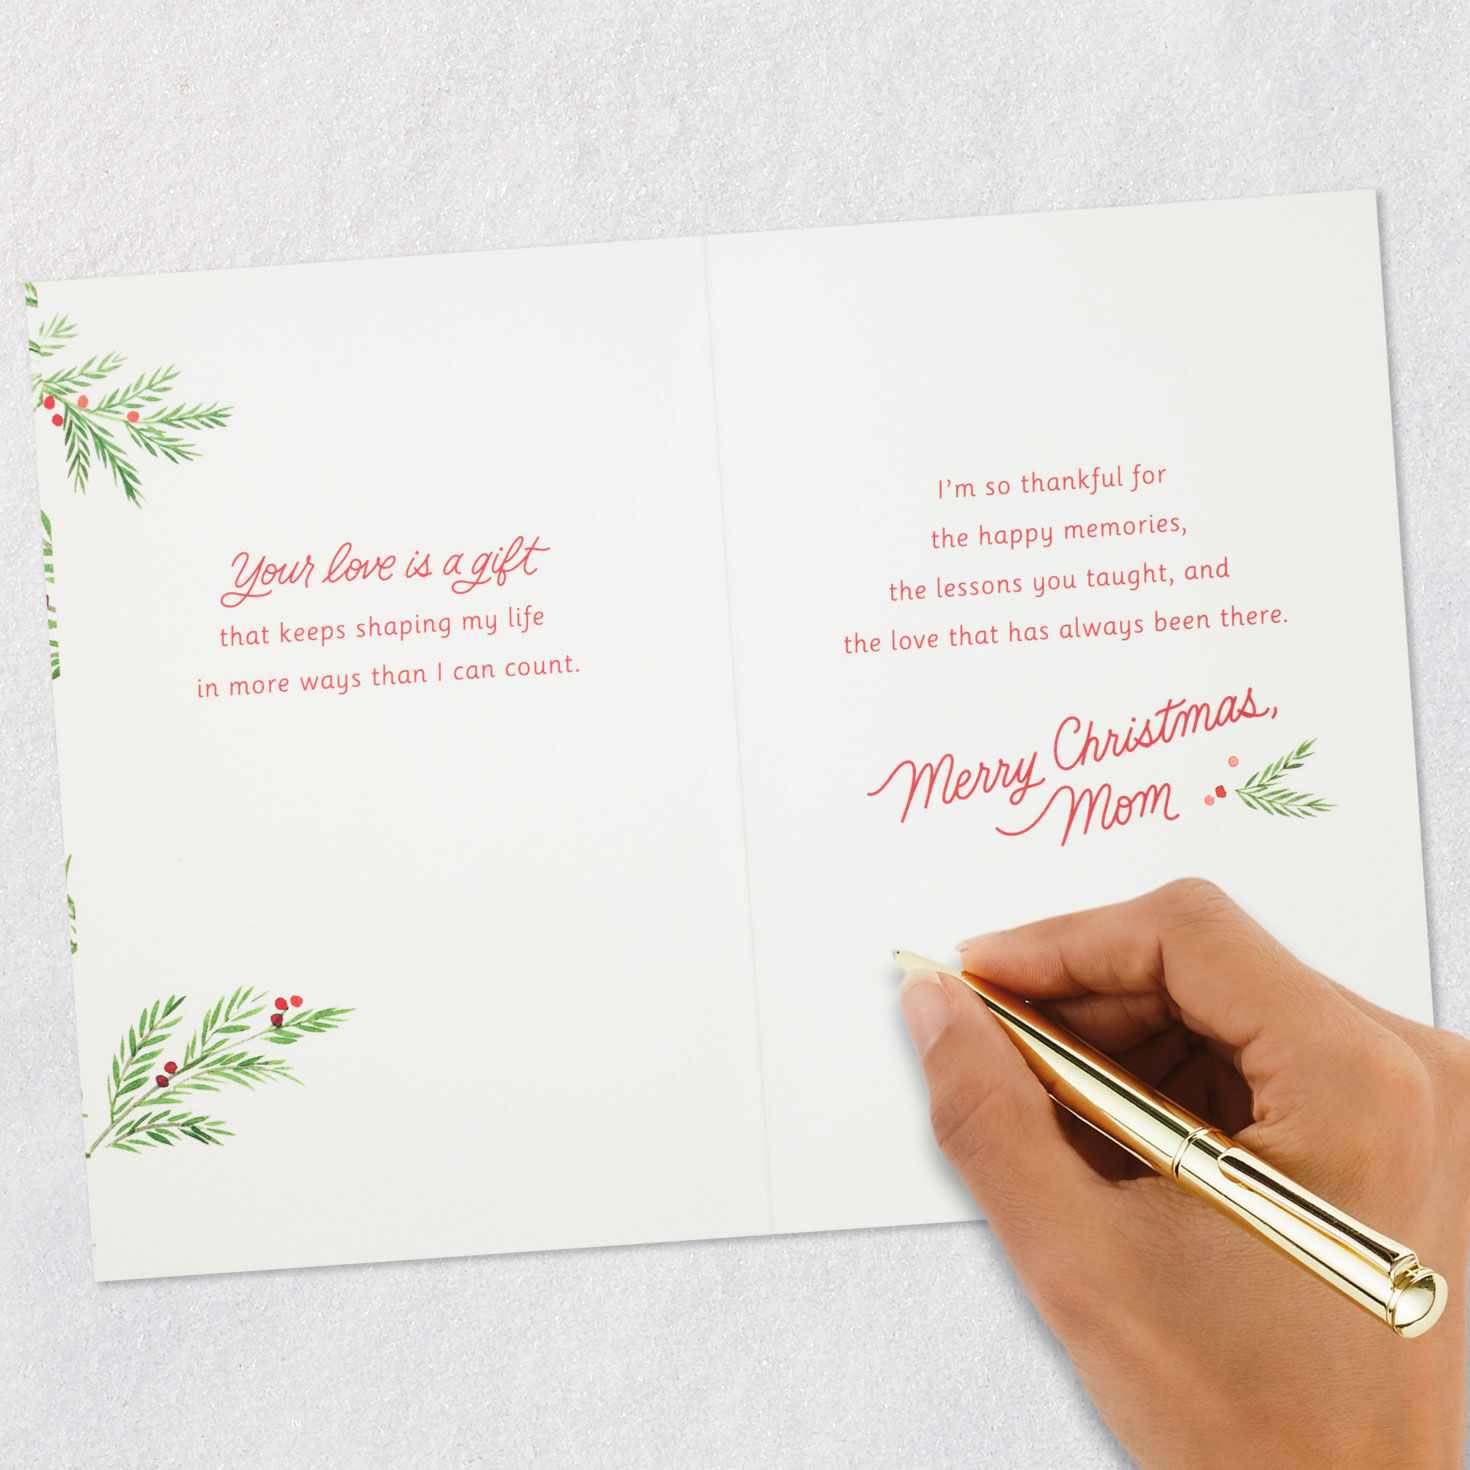 Your love is a gift
that keeps shaping my life
in more ways than I can count.
I'm so thankful for
the happy memories,
the lessons you taught, and
the love that has always been there.
Merry Christmas,
Mom